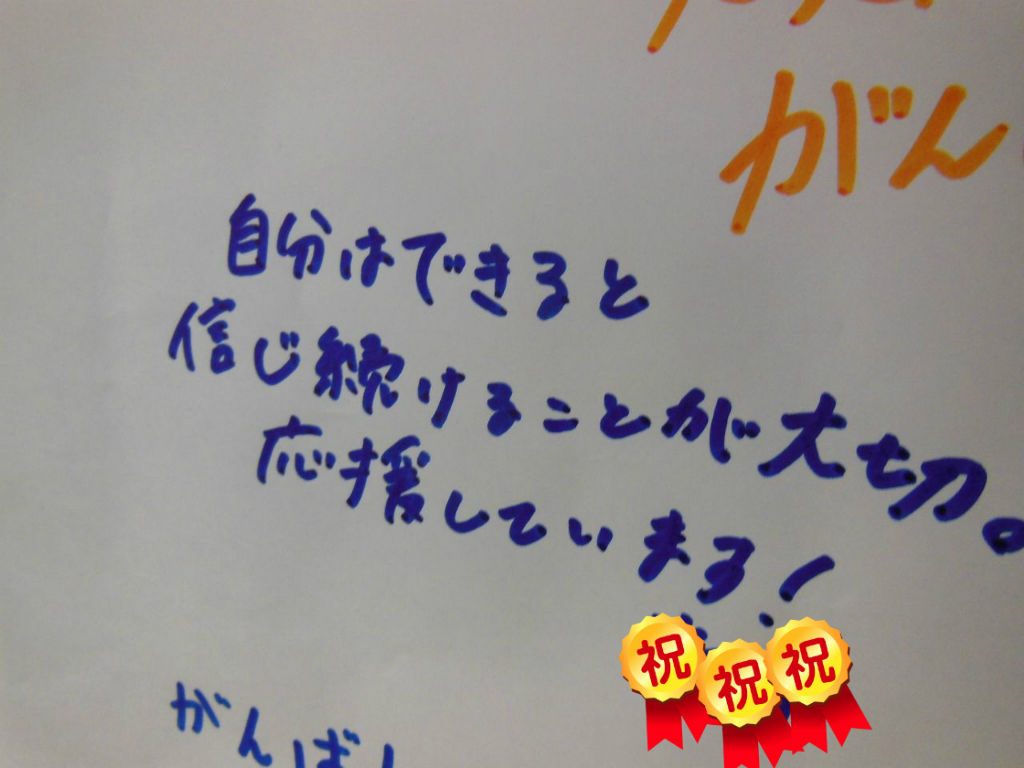 がん
自分はできると
信じ続けることが大切。
応援しています!
祝
祝
祝
がんば